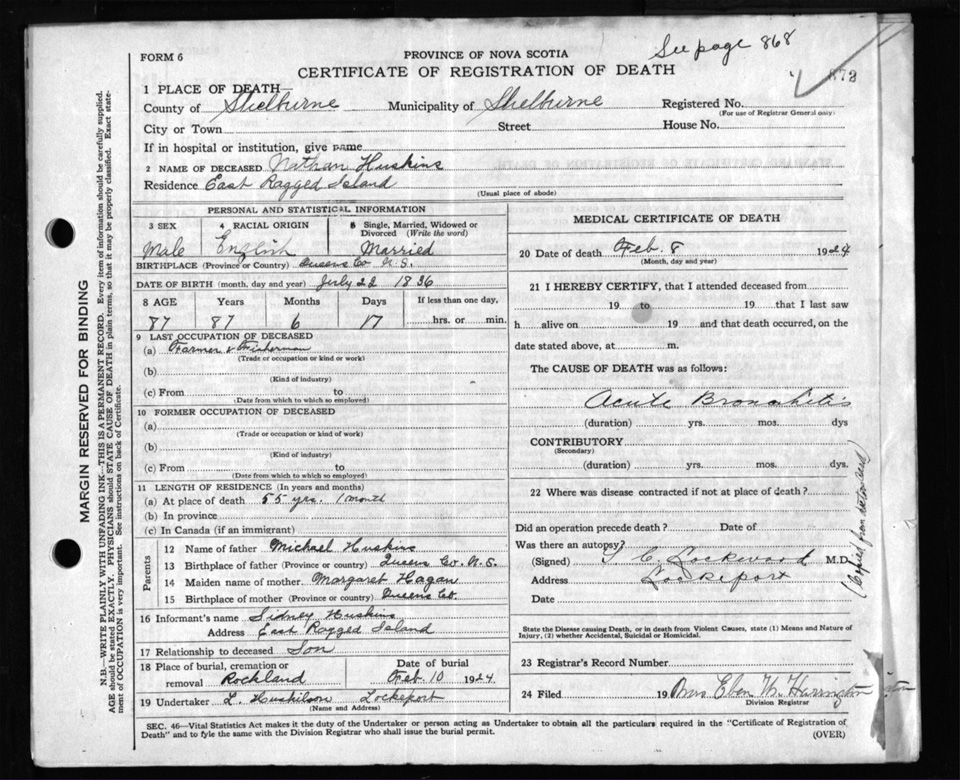 FORM 6
PROVINCE OF NOVA SCOTIA
See page 868
CERTIFICATE OF REGISTRATION OF DEATH
873
1 PLACE OF DEATH
County of Shelburne Municipality of Shelburne Registered No.
(For use of Registrar General only)
City or Town Street House No.
If in hospital or institution, give name
2 NAME OF DECEASED Nathan Huskins
Residence East Ragged Island
(Usual place of abode)
PERSONAL AND STATISTICAL INFORMATION
3 SEX 4 RACIAL ORIGIN 5 Single, Married, Widowed or
Divorced (Write the word)
Male English Married
BIRTHPLACE (Province or Country) Queens Co N.S.
DATE OF BIRTH (month, day and year) July 22 1836
8 AGE Years Months Days If less than one day,
87 87 6 17 hrs. or min.
9 LAST OCCUPATION OF DECEASED
(a) Farmer & Fisherman
(Trade or occupation or kind or work)
(b)
(Kind of industry)
(c) From to
(Date from which to which so employed)
10 FORMER OCCUPATION OF DECEASED
(a)
(Trade or occupation or kind of work)
(b)
(Kind of industry)
(c) From to
(Date from which to which so employed)
11 LENGTH OF RESIDENCE (In years and months)
(a) At place of death 55 yrs. 1 month
(b) In province
(c) In Canada (if an immigrant)
Parents
12 Name of father Michael Huskins
13 Birthplace of father (Province or country) Queens Co. N.S.
14 Maiden name of mother Margaret Hagan
15 Birthplace of mother (Province or country) Queens Co.
16 Informant's name Sidney Huskins
Address East Ragged Island
17 Relationship to deceased Son
18 Place of burial, cremation or Date of burial
removal Rockland Feb. 10 1924.
19 Undertaker L. Huskilson Lockeport
(Name and Address)
MEDICAL CERTIFICATE OF DEATH
20 Date of death Feb. 8 1924
(Month, day and year)
21 I HEREBY CERTIFY, that I attended deceased from
19 to 19 that I last saw
h alive on 19 and that death occurred, on the
date stated above, at m.
The CAUSE OF DEATH was as follows:
Acute Bronchitis
(duration) yrs. mos. dys
CONTRIBUTORY
(Secondary)
(duration) yrs. mos. dys.
22 Where was disease contracted if not at place of death?
Did an operation precede death? Date of
Was there an autopsy?
(Signed) C. Lockwood M.D.
Address Lockeport
Date
State the Disease causing Death, or in death from Violent Causes, state (1) Means and Nature of
Injury, (2) whether Accidental, Suicidal or Homicidal.
23 Registrar's Record Number
24 Filed 19 Mrs Eben W. Harrington
Division Registrar
SEC. 46—Vital Statistics Act makes it the duty of the Undertaker or person acting as Undertaker to obtain all the particulars required in the "Certificate of Registration of
Death" and to fyle the same with the Division Registrar who shall issue the burial permit.
(OVER)
MARGIN RESERVED FOR BINDING
N.B.—WRITE PLAINLY WITH UNFADING INK—THIS IS A PERMANENT RECORD. Every item of information should be carefully supplied.
AGE should be stated EXACTLY. PHYSICIANS should STATE CAUSE OF DEATH in plain terms, so that it may be properly classified. Exact state-
ment of OCCUPATION is very important. See instructions on back of Certificate.